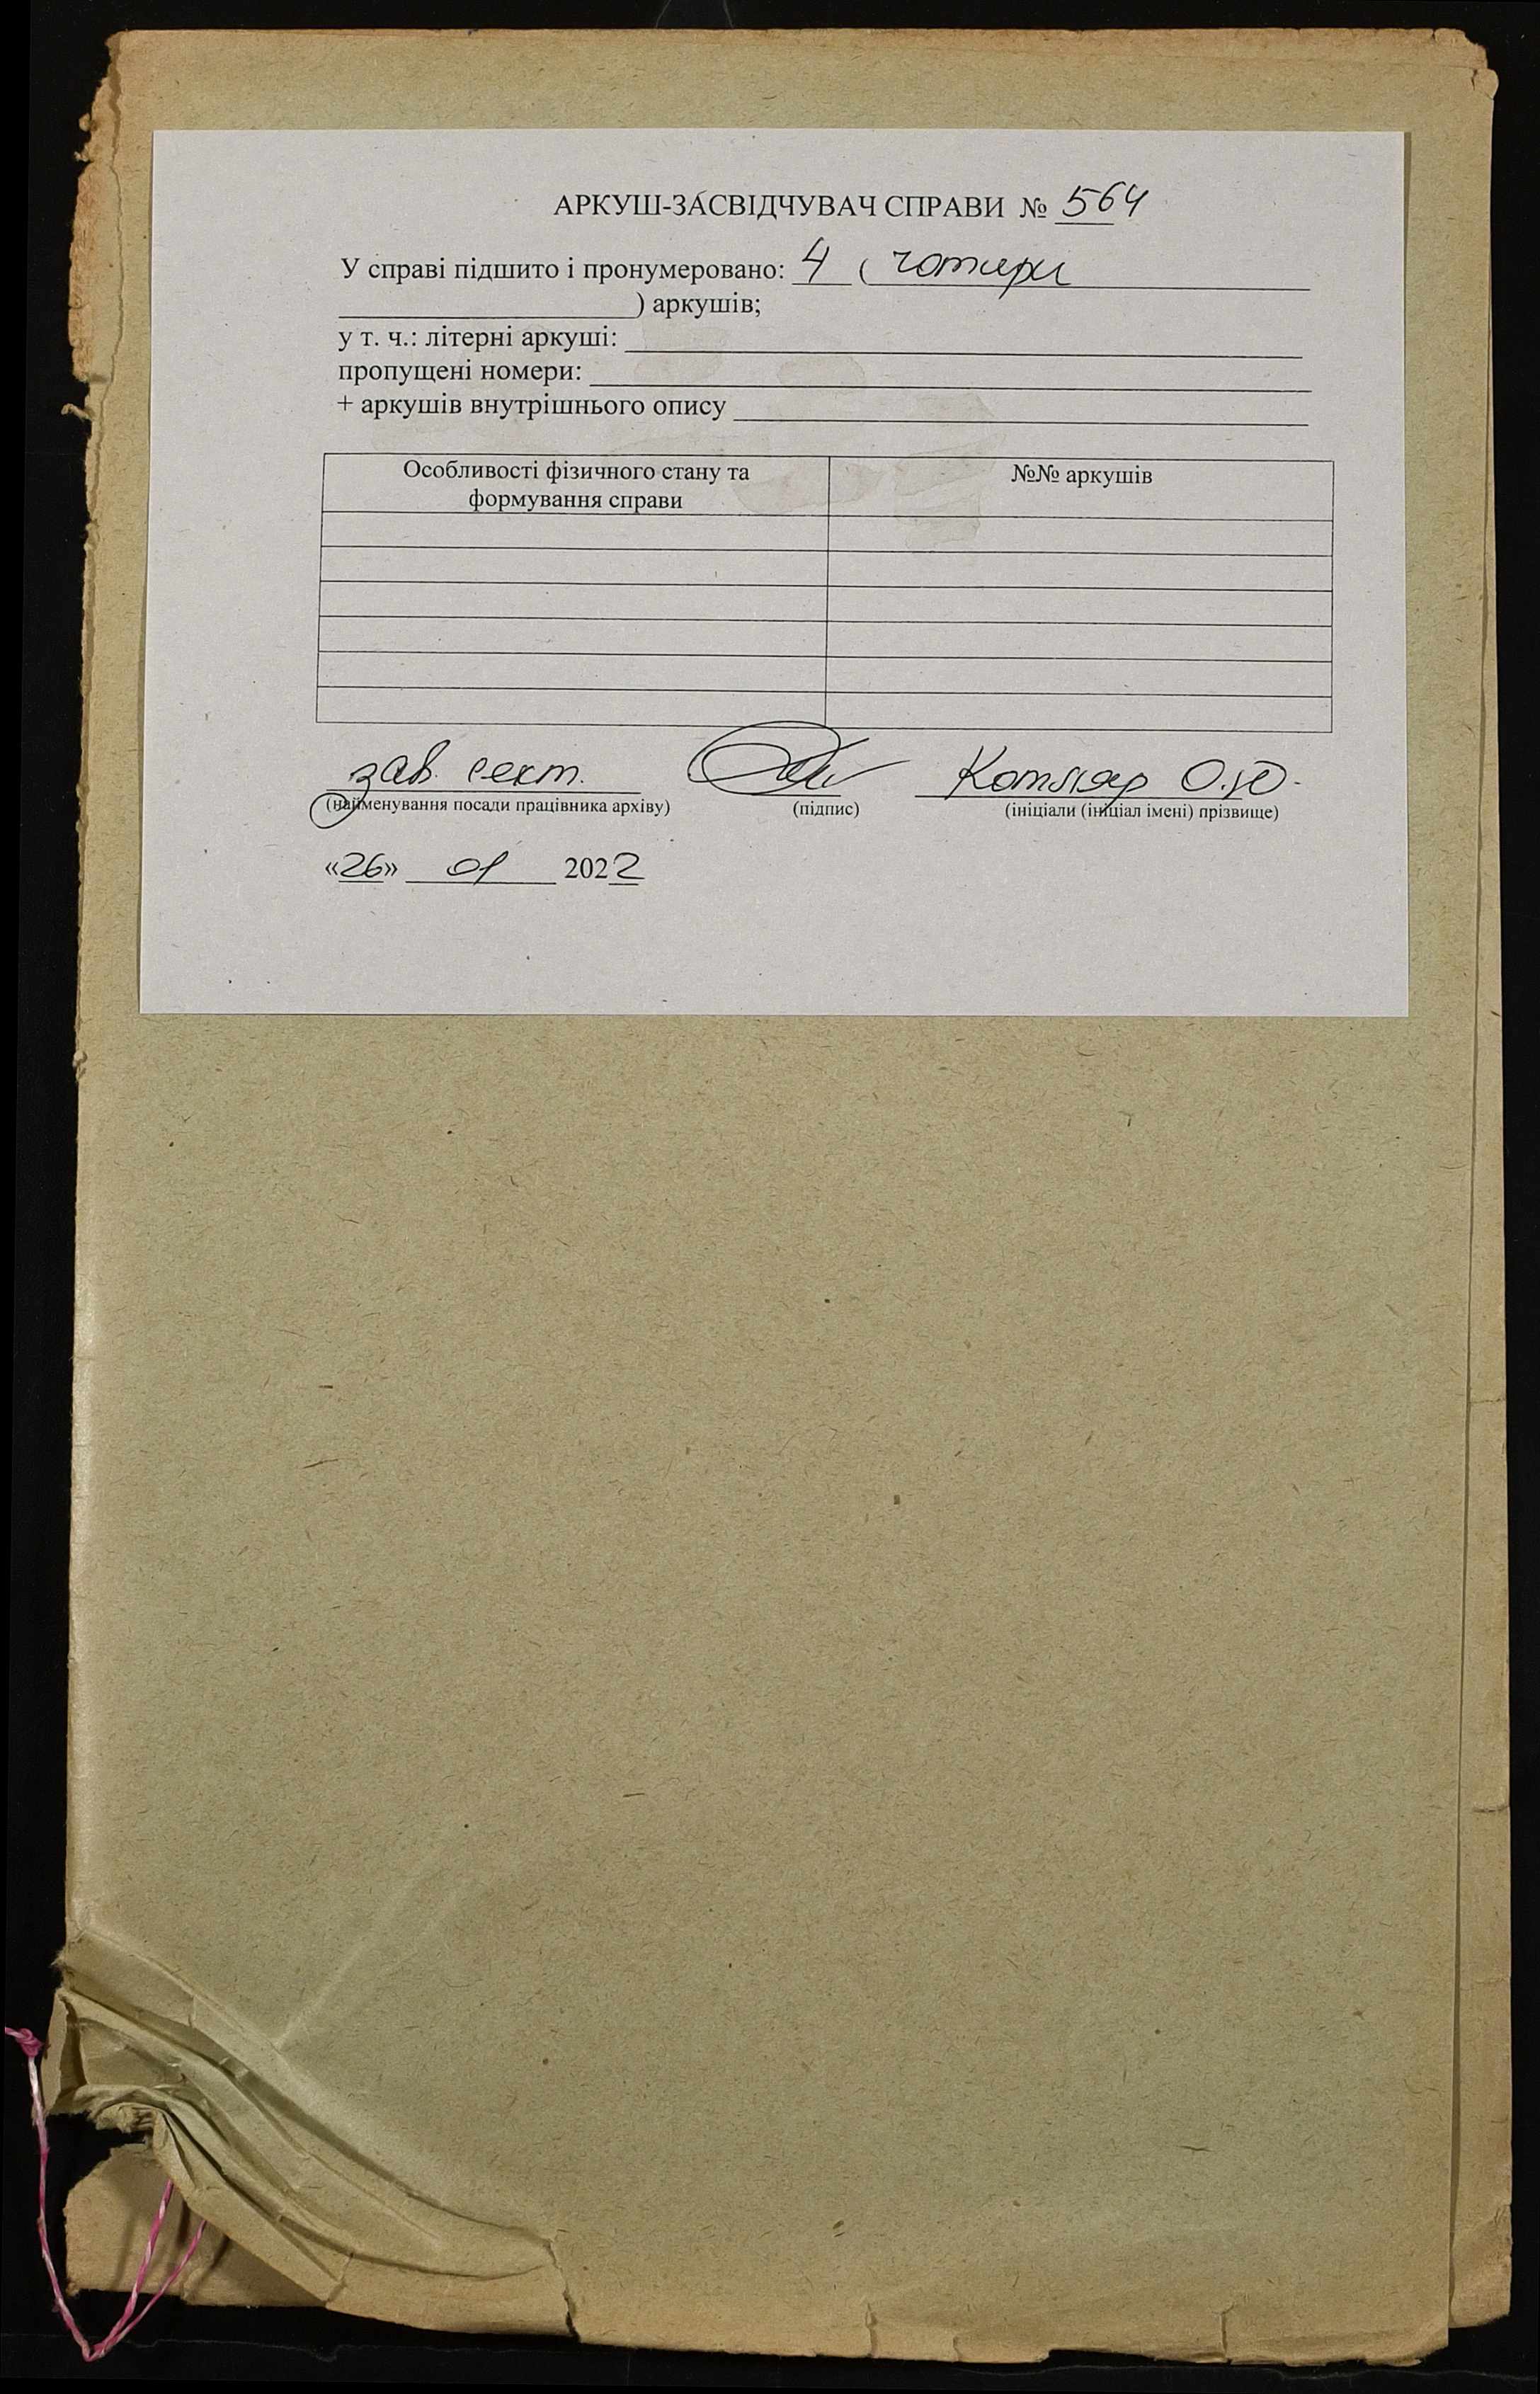 АРКУШ-ЗАСВІДЧУВАЧ СПРАВИ № 564
У справі підшито і пронумеровано: 4 ( чотири
) аркушів;
у т. ч.: літерні аркуші:
пропущені номери:
+ аркушів внутрішнього опису
Особливості фізичного стану та
формування справи
№№ аркушів
зав. сект. Котляр О.Ю.
(найменування посади працівника архіву) (підпис) (ініціали (ініціал імені) прізвище)
«26» 01 2022